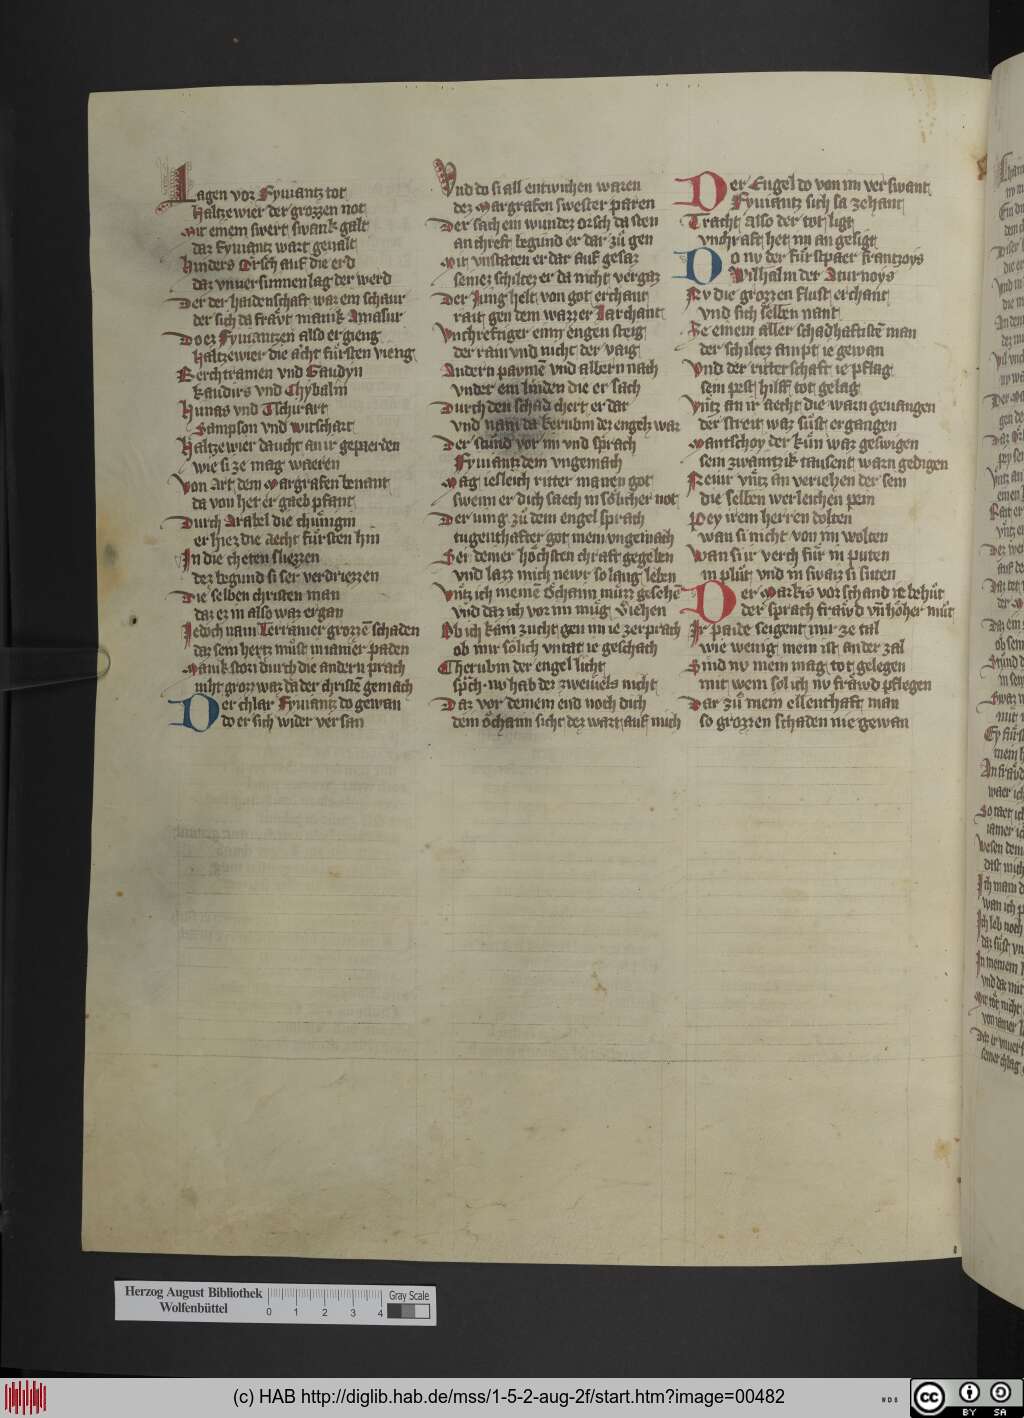 Lagen vor Fyuiantz tot
haltzewier der grozzen not
Mit einem swert swank galt
daz Fyuiantz wart geualt
hinders Orsch auf die erd
daz vnuersunnen lag der werd
Der der haidenschaft waz ein schaur
der sich da fraͤvt manik Amasur
Do ez Fyuiantzen also ergieng
haltzewier die aͤcht fuͤrsten vieng
Berchtramen vnd Gaudyn
kaudirs vnd Chybalin
hunas vnd Tschirart
Sampson vnd witschart
haltzewier daucht an ir gepaerden
wie si ze mag waeren
Von art dem Margrafen benant
da von het er gaeb pfant
Durch Arabel die chuͤnigin
er hiez die aecht fuͤrsten hin
In die cheten sliezzen
dez begund si ser verdriezzen
Die selben christen man
daz ez in also waz ergan
Jedoch nam Terramer grozzē schaden
daz sein hertz muͤst in iamer paden
Manik stori durch die andern prach
niht groz waz da der christē gemach
Der chlar Fyuiantz do gewan
do er sich wider versan
Vnd do si all entwichen waren
dez Margrafen swester paren
Der sach ein wundez orsch da sten
an chreft begund er dar zuͤ gen
Mit vnstaten er dar auf gesaz
seinez schiltez er da nicht vergaz
Der Jung helt von got erchant
rait gen dem wazzer Larchant
Vnchreftiger einn engen steig
der rain vnd nicht der vaig
Andern paymē vnd albern nach
vnder ein linden die er sach
Durch den schad chert er dar
vnd nam da kerubin dez engelz war
Der stuͤnd vor im vnd sprach
Fyuiantz dem vngemach
Mag iesleich ritter manen got
swenn er dich saech in soͤlicher not
Der iung zuͤ dem engel sprach
tugenthafter got mein vngemach
Sei deiner hoͤchsten chraft gegeben
vnd lazz mich newr so lang leben
Vntz ich meinē oͤchaim muͤzz gesehē
vnd daz ich vor im muͤg v̈iehen
Ob ich kain zucht gen im ie zerprach
ob mir soͤlich vntat ie geschach
Cherubin der engel licht
sp̄ch nv hab dez zweiuels nicht
Daz vor deinem end noch dich
dein oͤchaim sicht dez wart auf mich
Der Engel do von im verswant
Fyuiantz sich sa zehant
Tracht also der tot ligt
vnchraft het im an gesigt
Do nv der fuͤrst paer frantzoys
Wilhalm der Aturnoys
Nv die grozzen flust erchant
vnd sich selben nant
Ze einem aller schadhaftistē man
der schiltez ampt ie gewan
Vnd der ritterschaft ie pflag
sein pest hilff tot gelag
Vntz an ir aecht die warn geuangen
der streit waz suͤst ergangen
Mantschoy der kuͤn waz geswigen
sein zwaintzik tausent warn gedigen
Neur vntz an vierzehen der sein
die selben werleichen pein
Pey irem herren dolten
wan si nicht von im wolten
Wan si ir verch fuͤr in puten
in pluͤt vnd in swaiz si suten
Der Markis vor schand ie behuͤt
der sprach fraͤwd vn̄ hoͤher muͤt
Ir paide seigent mir ze tal
wie wenig mein ist an der zal
Sind nv mein mag tot gelegen
mit wem sol ich nv fraͤwd pflegen
Dar zuͤ mein ellenthaft man
so grozzen schaden nie gewan
Herzog August Bibliothek
Wolfenbüttel
0 1 2 3 4
Gray Scale
(c) HAB http://diglib.hab.de/mss/1-5-2-aug-2f/start.htm?image=00482
WDB
cc BY SA